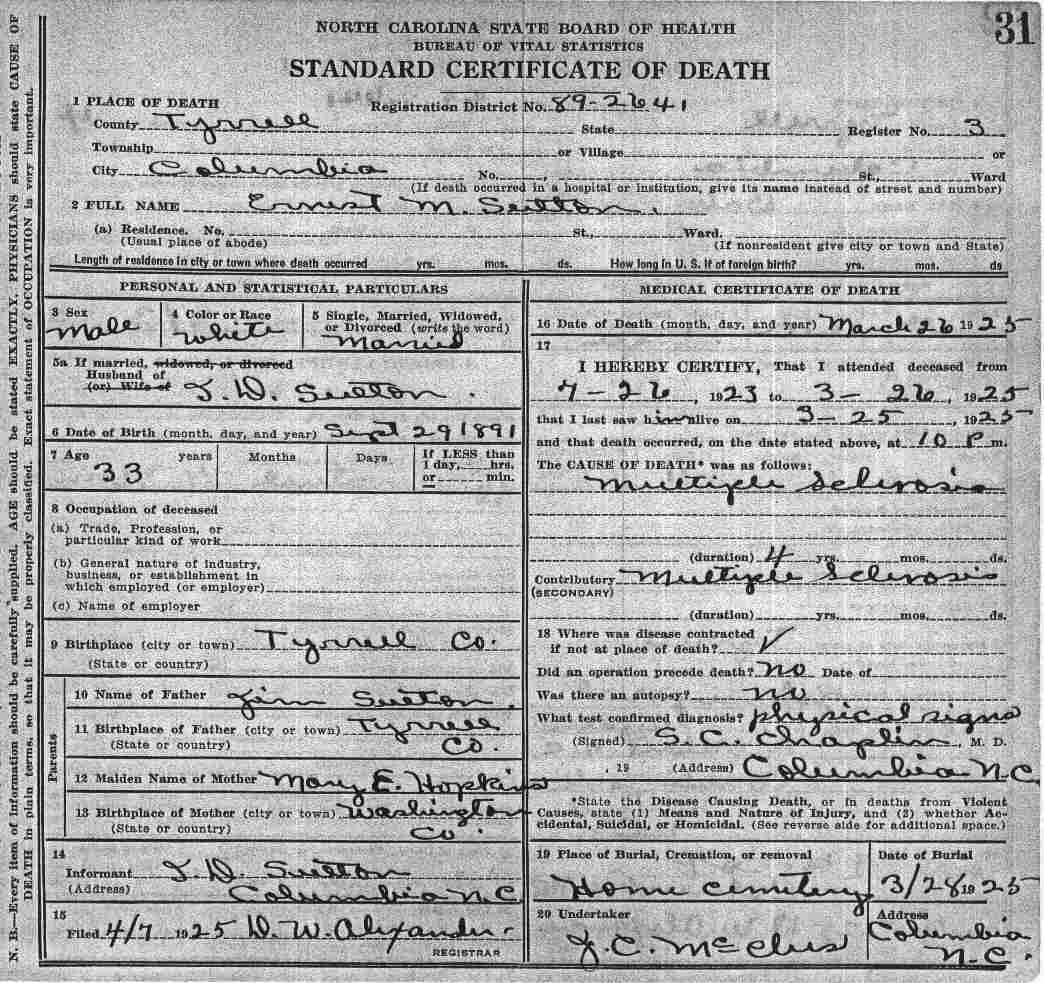 31
NORTH CAROLINA STATE BOARD OF HEALTH
BUREAU OF VITAL STATISTICS
STANDARD CERTIFICATE OF DEATH
1 PLACE OF DEATH Registration District No. 89-2641
County Tyrrell State Register No. 3
Township or Village or
City Columbia No. , St., Ward
(If death occurred in a hospital or institution, give its name instead of street and number)
2 FULL NAME Ernest M. Sutton.
(a) Residence. No. St., Ward.
(Usual place of abode) (If nonresident give city or town and State)
Length of residence in city or town where death occurred yrs. mos. ds. How long in U. S. if of foreign birth? yrs. mos. ds
PERSONAL AND STATISTICAL PARTICULARS
3 Sex
Male
4 Color or Race
White
5 Single, Married, Widowed,
or Divorced (write the word)
Married
5a If married, widowed, or divorced
Husband of
(or) Wife of
J. D. Sutton.
6 Date of Birth (month, day, and year) Sept 29 1891
7 Age 33 years Months Days
If LESS than
1 day, hrs.
or min.
8 Occupation of deceased
(a) Trade, Profession, or
particular kind of work
(b) General nature of industry,
business, or establishment in
which employed (or employer)
(c) Name of employer
9 Birthplace (city or town) Tyrrell Co.
(State or country)
Parents
10 Name of Father Jim Sutton.
11 Birthplace of Father (city or town) Tyrrell
(State or country) Co.
12 Maiden Name of Mother Mary E. Hopkins
13 Birthplace of Mother (city or town) Washington
(State or country) Co.
14
Informant J. D. Sutton
(Address) Columbia N C
15
Filed 4/7 1925 D. W. Alexander
REGISTRAR
MEDICAL CERTIFICATE OF DEATH
16 Date of Death (month, day, and year) March 26 1925
17
I HEREBY CERTIFY, That I attended deceased from
7-26, 1923 to 3-26, 1925
that I last saw him alive on 3-25, 1925
and that death occurred, on the date stated above, at 10 P m.
The CAUSE OF DEATH* was as follows:
Multiple Sclerosis
(duration) 4 yrs. mos. ds.
Contributory Multiple Sclerosis
(SECONDARY)
(duration) yrs. mos. ds.
18 Where was disease contracted
if not at place of death? ✓
Did an operation precede death? no Date of
Was there an autopsy? no
What test confirmed diagnosis? physical signs
(Signed) S. C. Chaplin, M. D.
, 19 (Address) Columbia N.C.
*State the Disease Causing Death, or in deaths from Violent
Causes, state (1) Means and Nature of Injury, and (2) whether Ac-
cidental, Suicidal, or Homicidal. (See reverse side for additional space.)
19 Place of Burial, Cremation, or removal
Home Cemetery
Date of Burial
3/28 1925
20 Undertaker
J. C. McClus
Address
Columbia
N.C.
N. B.—Every item of information should be carefully supplied. AGE should be stated EXACTLY. PHYSICIANS should state CAUSE OF
DEATH in plain terms, so that it may be properly classified. Exact statement of OCCUPATION is very important.